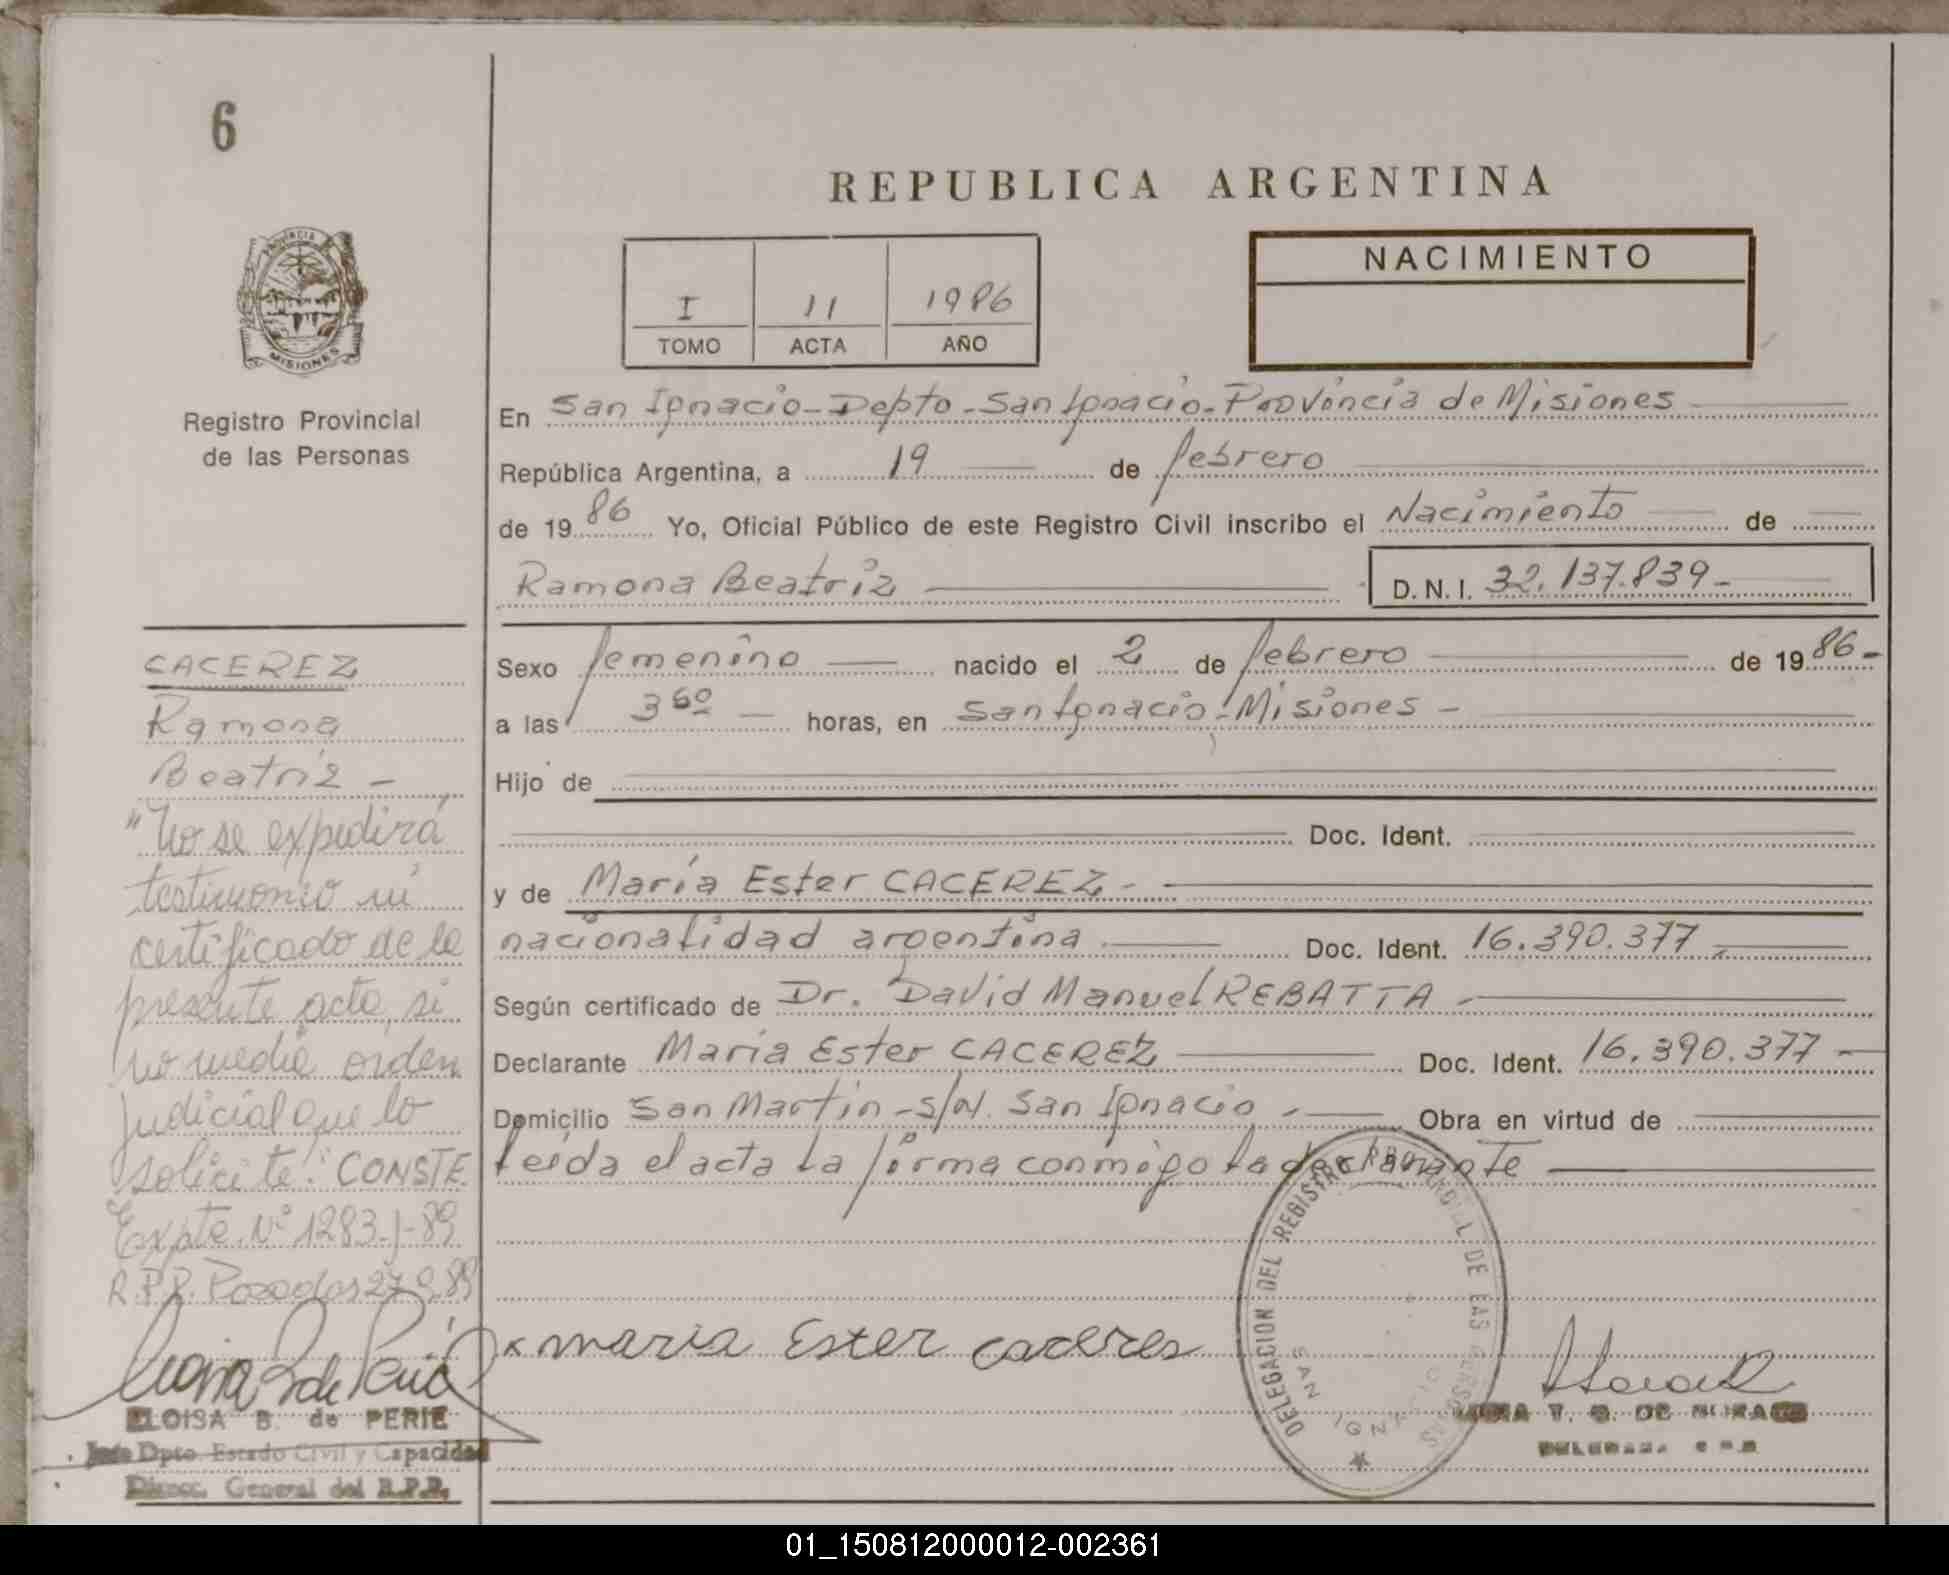 6
PROVINCIA
MISIONES
Registro Provincial
de las Personas
REPUBLICA ARGENTINA
I 11 1986
TOMO ACTA AÑO
NACIMIENTO
En San Ignacio - Depto - San Ignacio - Provincia de Misiones
República Argentina, a 19 de febrero
de 1986 Yo, Oficial Público de este Registro Civil inscribo el Nacimiento de
Ramona Beatriz D.N.I. 32.137.839 -
Sexo femenino nacido el 2 de febrero de 1986 -
a las 3 50 horas, en San Ignacio - Misiones -
Hijo de
Doc. Ident.
y de María Ester CACEREZ -
nacionalidad argentina Doc. Ident. 16.390.377 -
Según certificado de Dr. David Manuel REBATTA -
Declarante María Ester CACEREZ Doc. Ident. 16.390.377 -
Domicilio San Martín - s/N. San Ignacio - Obra en virtud de
leída el acta la firma conmigo la declarante
CACEREZ
Ramona
Beatriz -
"No se expedirá
testimonio ni
certificado de la
presente acta, si
no media orden
judicial que lo
solicite". CONSTE.
Expte. Nº 1283-J-89
R.P.P. Posadas 27.9.89
ELOISA B. de PERIE
Jefe Dpto. Estado Civil y Capacidad
Direcc. General del R.P.P.
x maria Ester caceres
DELEGACION DEL REGISTRO PROVINCIAL DE LAS PERSONAS
SAN IGNACIO
01_150812000012-002361